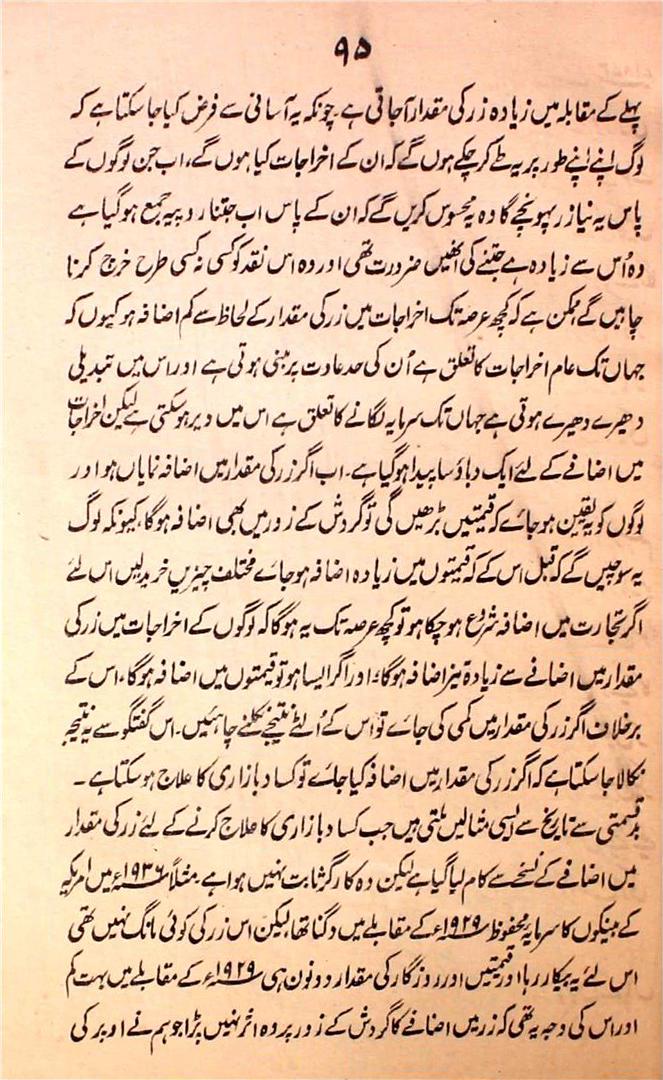 ۹۵
پہلے کے مقابلہ میں زیادہ زر کی مقدار آجاتی ہے۔ چونکہ یہ آسانی سے فرض کیا جا سکتا ہے کہ
لوگ اپنے اپنے طور پر یہ طے کر چکے ہوں گے کہ ان کے اخراجات کیا ہوں گے، اب جن لوگوں کے
پاس یہ نیا زر پہونچے گا وہ یہ محسوس کریں گے کہ ان کے پاس اب جتنا روپیہ جمع ہو گیا ہے
وہ اُس سے زیادہ ہے جتنے کی انھیں ضرورت تھی اور وہ اس نقد کو کسی نہ کسی طرح خرچ کرنا
چاہیں گے ممکن ہے کہ کچھ عرصہ تک اخراجات میں زر کی مقدار کے لحاظ سے کم اضافہ ہو کیوں کہ
جہاں تک عام اخراجات کا تعلق ہے اُن کی حد عادت پر مبنی ہوتی ہے اور اس میں تبدیلی
دھیرے دھیرے ہوتی ہے جہاں تک سرمایہ لگانے کا تعلق ہے اس میں دیر ہو سکتی ہے لیکن اخراجات
میں اضافے کے لئے ایک دباؤ سا پیدا ہو گیا ہے۔ اب اگر زر کی مقدار میں اضافہ نمایاں ہو اور
لوگوں کو یہ یقین ہو جائے کہ قیمتیں بڑھیں گی تو گردش کے زور میں بھی اضافہ ہوگا، کیونکہ لوگ
یہ سوچیں گے کہ قبل اس کے کہ قیمتوں میں زیادہ اضافہ ہو جائے مختلف چیزیں خرید لیں اس لئے
اگر تجارت میں اضافہ شروع ہو چکا ہو تو کچھ عرصہ تک یہ ہوگا کہ لوگوں کے اخراجات میں زر کی
مقدار میں اضافے سے زیادہ تیز اضافہ ہوگا، اور اگر ایسا ہو تو قیمتوں میں اضافہ ہوگا، اس کے
برخلاف اگر زر کی مقدار میں کمی کی جائے تو اس کے اُلٹے نتیجے نکلنے چاہئیں۔ اس گفتگو سے یہ نتیجہ
نکالا جا سکتا ہے کہ اگر زر کی مقدار میں اضافہ کیا جائے تو کساد بازاری کا علاج ہو سکتا ہے۔
بدقسمتی سے تاریخ سے ایسی مثالیں ملتی ہیں جب کساد بازاری کا علاج کرنے کے لئے زر کی مقدار
میں اضافے کے نسخے سے کام لیا گیا ہے لیکن وہ کارگر ثابت نہیں ہوا ہے۔ مثلاً ۱۹۳۶ء میں امریکہ
کے بینکوں کا سرمایہ محفوظ ۱۹۲۹ء کے مقابلے میں دگنا تھا لیکن اس زر کی کوئی مانگ نہیں تھی
اس لئے یہ بیکار رہا اور قیمتیں اور روزگار کی مقدار دونوں ہی ۱۹۲۹ء کے مقابلے میں بہت کم
اور اس کی وجہ یہ تھی کہ زر میں اضافے کا گردش کے زور پر وہ اثر نہیں پڑا جو ہم نے اوپر کی